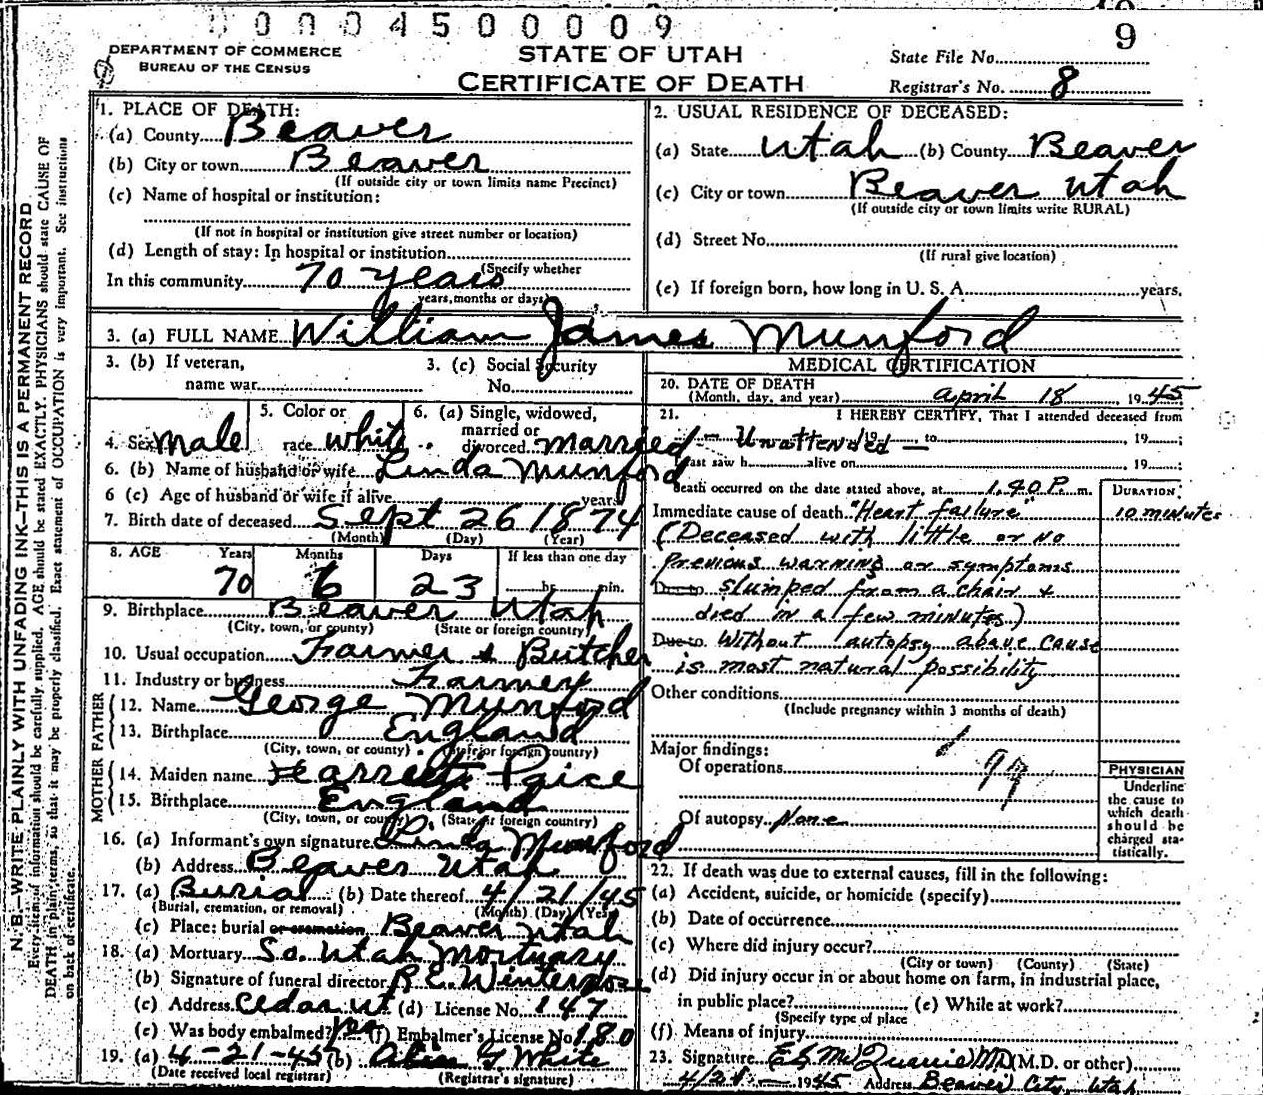 0 0 0 4 5 0 0 0 0 9
9
DEPARTMENT OF COMMERCE
BUREAU OF THE CENSUS
STATE OF UTAH
CERTIFICATE OF DEATH
State File No.
Registrar's No. 8
N. B.—WRITE PLAINLY WITH UNFADING INK—THIS IS A PERMANENT RECORD.
Every item of information should be carefully supplied. AGE should be stated EXACTLY. PHYSICIANS should state CAUSE OF
DEATH in plain terms, so that it may be properly classified. Exact statement of OCCUPATION is very important. See instructions
on back of certificate.
1. PLACE OF DEATH:
(a) County Beaver
(b) City or town Beaver
(If outside city or town limits name Precinct)
(c) Name of hospital or institution:
(If not in hospital or institution give street number or location)
(d) Length of stay: In hospital or institution
(Specify whether
In this community 70 years
years, months or days)
2. USUAL RESIDENCE OF DECEASED:
(a) State Utah (b) County Beaver
(c) City or town Beaver Utah
(If outside city or town limits write RURAL)
(d) Street No.
(If rural give location)
(e) If foreign born, how long in U. S. A. years.
3. (a) FULL NAME William James Munford
3. (b) If veteran,
name war
3. (c) Social Security
No.
4. Sex male
5. Color or
race white
6. (a) Single, widowed,
married or
divorced married
6. (b) Name of husband or wife Linda Munford
6 (c) Age of husband or wife if alive years
7. Birth date of deceased Sept 26 1874
(Month) (Day) (Year)
8. AGE Years Months Days If less than one day
70 6 23 hr. min.
9. Birthplace Beaver Utah
(City, town, or county) (State or foreign country)
10. Usual occupation Farmer & Butcher
11. Industry or business Farmer
FATHER
12. Name George Munford
13. Birthplace England
(City, town, or county) (State or foreign country)
MOTHER
14. Maiden name Harriett Paice
15. Birthplace England
(City, town, or county) (State or foreign country)
16. (a) Informant's own signature Linda Munford
(b) Address Beaver Utah
17. (a) Burial (b) Date thereof 4/21/45
(Burial, cremation, or removal) (Month) (Day) (Year)
(c) Place: burial or cremation Beaver Utah
18. (a) Mortuary So. Utah Mortuary
(b) Signature of funeral director R.E. Winterrose
(c) Address Cedar Ut (d) License No. 147
(e) Was body embalmed? (f) Embalmer's License No. 180
19. (a) 4-21-45 (b) G. White
(Date received local registrar) (Registrar's signature)
MEDICAL CERTIFICATION
20. DATE OF DEATH
(Month, day, and year) April 18 1945
21. I HEREBY CERTIFY, That I attended deceased from
— Unattended — 19 to 19 ;
last saw h alive on 19 ;
death occurred on the date stated above, at 1:40 P. m.
DURATION
Immediate cause of death "Heart failure" 10 minutes
(Deceased with little or no
previous warning or symptoms
Due to slumped from a chair &
died in a few minutes)
Due to Without autopsy above cause
is most natural possibility
Other conditions
(Include pregnancy within 3 months of death)
Major findings:
Of operations
Of autopsy None
PHYSICIAN
Underline
the cause to
which death
should be
charged sta-
tistically.
22. If death was due to external causes, fill in the following:
(a) Accident, suicide, or homicide (specify)
(b) Date of occurrence
(c) Where did injury occur?
(City or town) (County) (State)
(d) Did injury occur in or about home on farm, in industrial place,
in public place? (e) While at work?
(Specify type of place
(f) Means of injury
23. Signature MD (M.D. or other)
1945 Address Beaver City, Utah